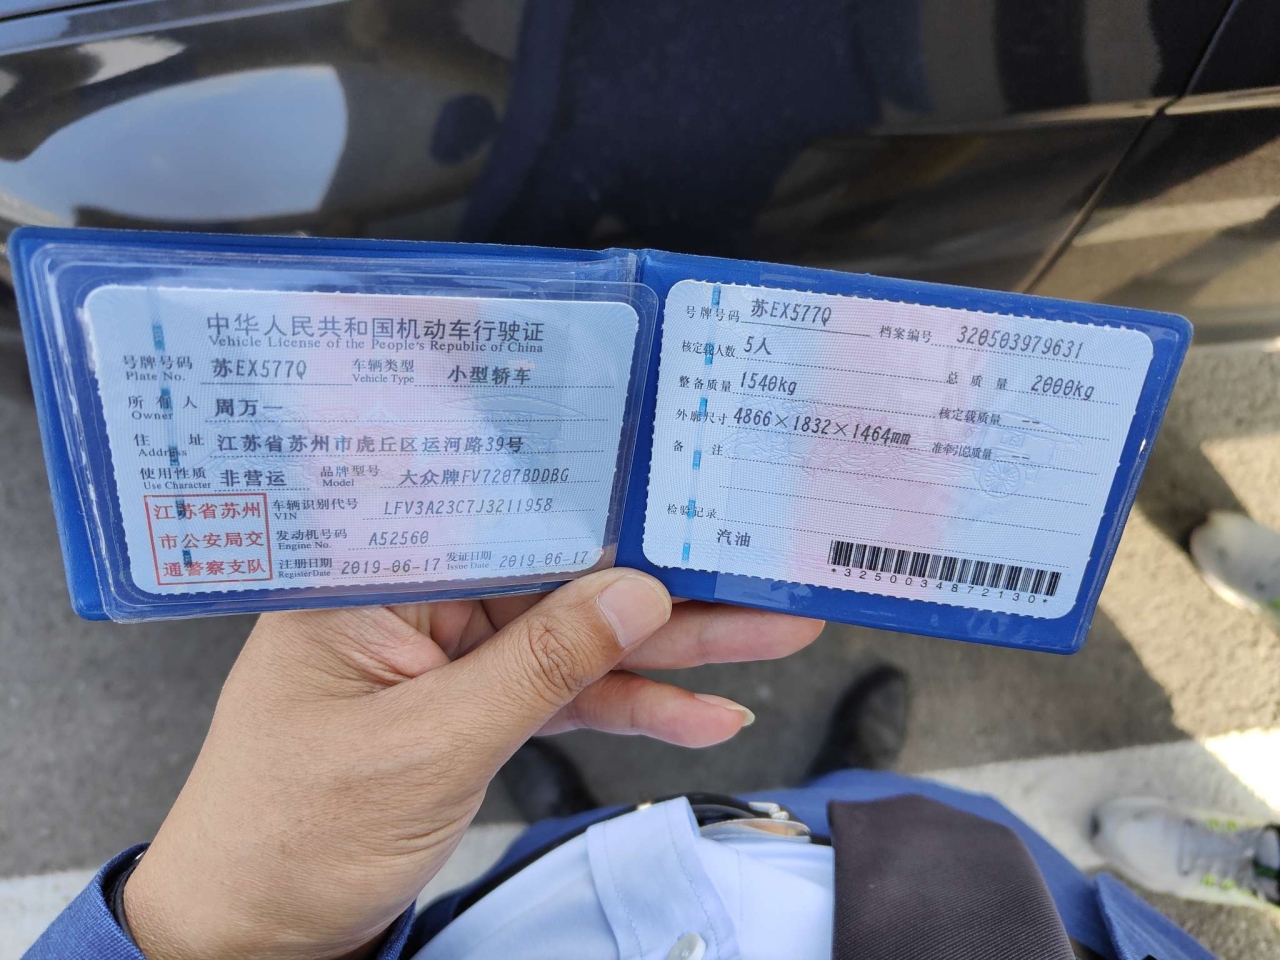 中华人民共和国机动车行驶证
Vehicle License of the People's Republic of China
号牌号码 苏EX577Q 车辆类型 小型轿车
Plate No. Vehicle Type
所有人 周万一
Owner
住址 江苏省苏州市虎丘区运河路39号
Address
使用性质 非营运 品牌型号 大众牌FV7207BDDBG
Use Character Model
江苏省苏州
市公安局交
通警察支队
车辆识别代号 LFV3A23C7J3211958
VIN
发动机号码 A52560
Engine No.
注册日期 2019-06-17 发证日期 2019-06-17
Register Date Issue Date
号牌号码 苏EX577Q 档案编号 320503979631
核定载人数 5人 总质量 2000kg
整备质量 1540kg 核定载质量 --
外廓尺寸 4866×1832×1464mm 准牵引总质量 --
备注
检验记录
汽油
*3250034872130*